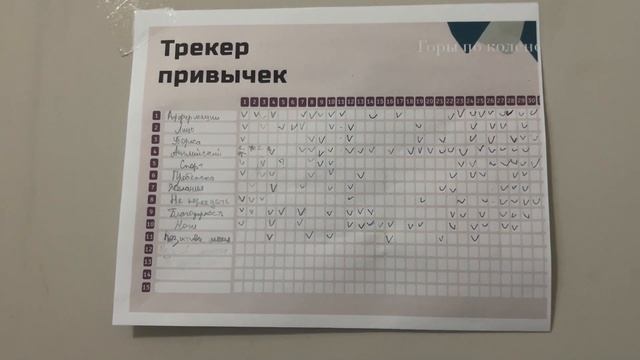 Горы по колено
Трекер
привычек
1 2 3 4 5 6 7 8 9 10 11 12 13 14 15 16 17 18 19 20 21 22 23 24 25 26 27 28 29 30
1 Аффирмации
2 Лицо
3
4 Английский
5 Спорт
6
7 Желания
8 Не переедать
9 Благодарность
10
11
12
13
14
15